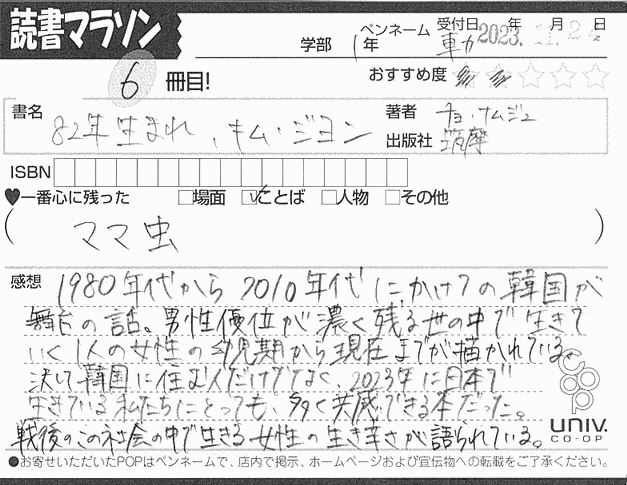 読書マラソン
学部 1年 ペンネーム 動 受付日 2023.11.24 年 月 日
6 冊目! おすすめ度
書名 82年生まれ、キム・ジヨン 著者 チョ・ナムジュ
出版社 筑摩
ISBN
♥一番心に残った □場面 ☑ことば □人物 □その他
(ママ虫)
感想 1980年代から2010年代にかけての韓国が
舞台の話。男性優位が濃く残る世の中で生きて
いく1人の女性の幼児期から現在までが描かれている。
決して韓国に住む人だけでなく、2023年に日本で
生きている私たちにとっても、多く共感できる本だった。
戦後のこの社会の中で生きる女性の生き辛さが語られている。
coop
UNIV.
CO-OP
●お寄せいただいたPOPはペンネームで、店内で掲示、ホームページおよび宣伝物への転載をご了承ください。